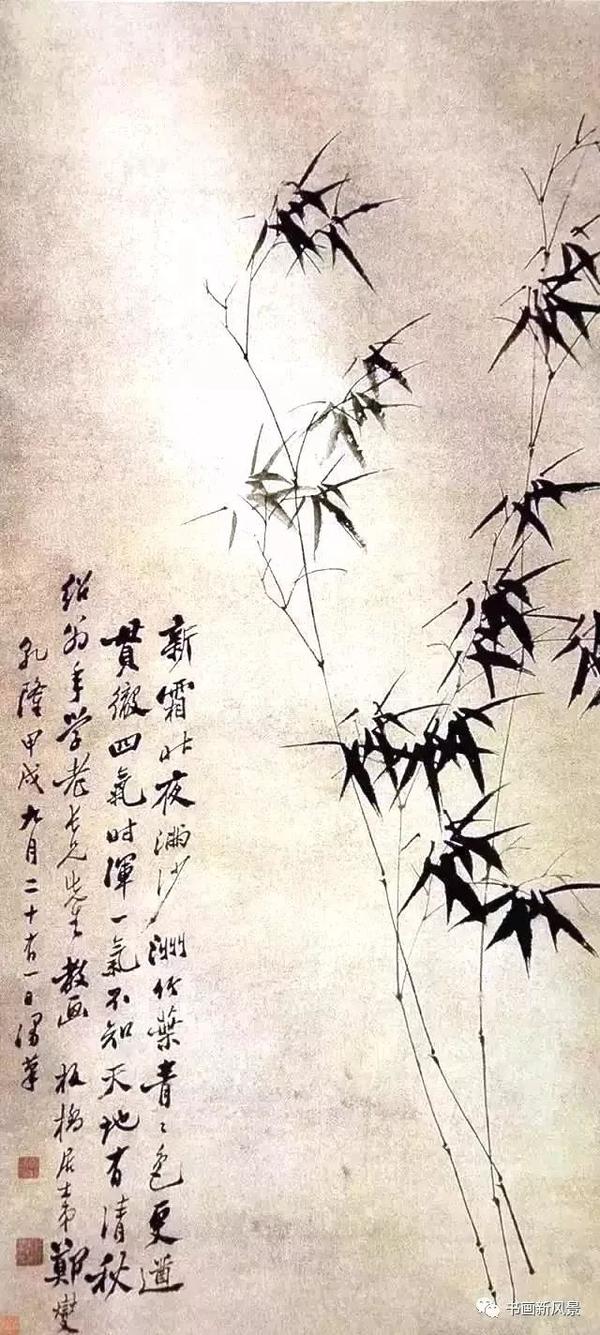 新霜昨夜满沙洲竹葉青〻色更遒
貫徹四氣时渾一氣不知天地有清秋
绍翁年学老长兄先生教画 板橋居士弟鄭燮
乾隆甲戌九月二十有一日
书画新风景